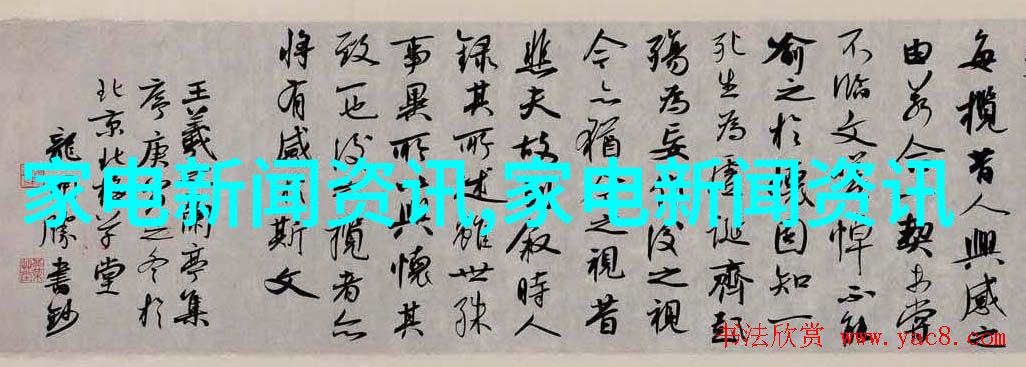 每攬昔人興感之
由若合一契未嘗
不臨文嗟悼不能
喻之於懷固知一
死生為虛誕齊彭
殤為妄作後之視
今亦猶今之視昔
悲夫故列敘時人
錄其所述雖世殊
事異所以興懷其
致一也後之攬者亦
將有感於斯文
王羲之蘭亭集
序庚寅之冬於
北京北草堂
龍開勝書鈔
家电新闻资讯,家电新闻资讯
书法欣赏 www.yac8.com